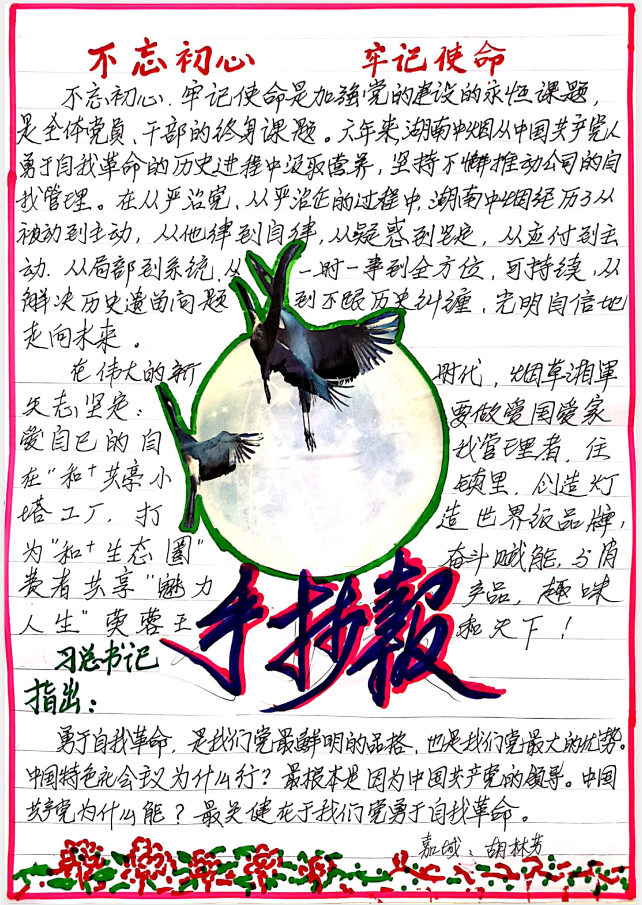 不忘初心 牢记使命
不忘初心、牢记使命是加强党的建设的永恒课题,
是全体党员、干部的终身课题。六年来,湖南中烟从中国共产党人
勇于自我革命的历史进程中汲取营养,坚持不懈推动公司的自
我管理。在从严治党、从严治企的过程中,湖南中烟经历了从
被动到主动,从他律到自律,从疑惑到坚定,从应付到主
动、从局部到系统,从 一时一事到全方位、可持续,从
解决历史遗留问题 到不跟历史纠缠,光明自信地
走向未来。
在伟大的新 时代,烟草湘军
矢志坚定: 要做爱国爱家
爱自己的自 我管理者,住
在“和+共享小 镇里,创造灯
塔工厂,打 造世界级品牌,
为“和+生态圈” 奋斗赋能,与消
费者共享“魅力 产品,趣味
人生”芙蓉王 和天下!
手抄報
习总书记
指出:
勇于自我革命,是我们党最鲜明的品格,也是我们党最大的优势。
中国特色社会主义为什么行?最根本是因为中国共产党的领导。中国
共产党为什么能?最关键在于我们党勇于自我革命。
嘉城、胡林芳